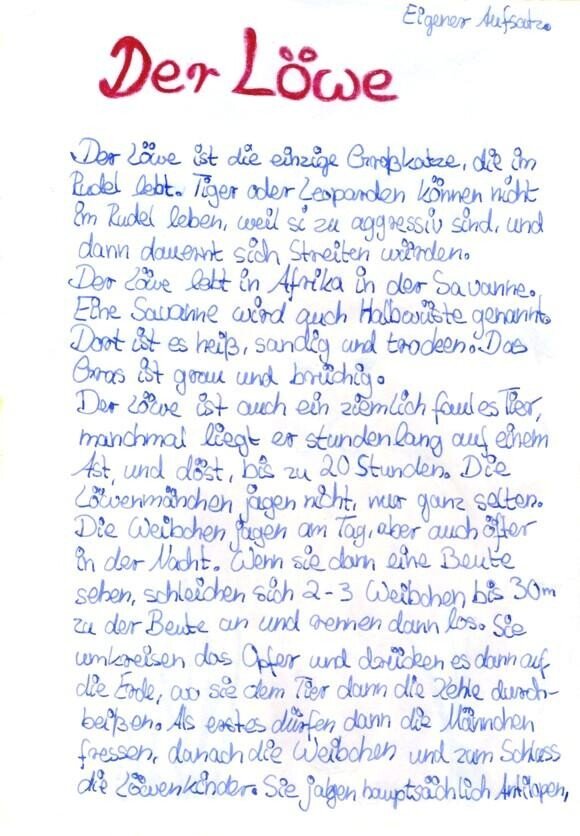 Eigener Aufsatz.
Der Löwe
Der Löwe ist die einzige Großkatze, die im
Rudel lebt. Tiger oder Leoparden können nicht
im Rudel leben, weil si zu aggressiv sind, und
dann dauernt sich Streiten würden.
Der Löwe lebt in Afrika in der Savanne.
Eine Savanne wird auch Halbwüste genannt.
Dort ist es heiß, sandig und trocken. Das
Gras ist grau und brüchig.
Der Löwe ist auch ein ziemlich faules Tier,
manchmal liegt er stundenlang auf einem
Ast, und döst, bis zu 20 Stunden. Die
Löwenmänchen jagen nicht, nur ganz selten.
Die Weibchen jagen am Tag, aber auch öfter
in der Nacht. Wenn sie dann eine Beute
sehen, schleichen sich 2-3 Weibchen bis 30m
zu der Beute an und rennen dann los. Sie
umkreisen das Opfer und drücken es dann auf
die Erde, wo sie dem Tier dann die Kehle durch-
beißen. Als erstes dürfen dann die Männchen
fressen, danach die Weibchen und zum Schluss
die Löwenkinder. Sie jagen hauptsächlich Antilopen,